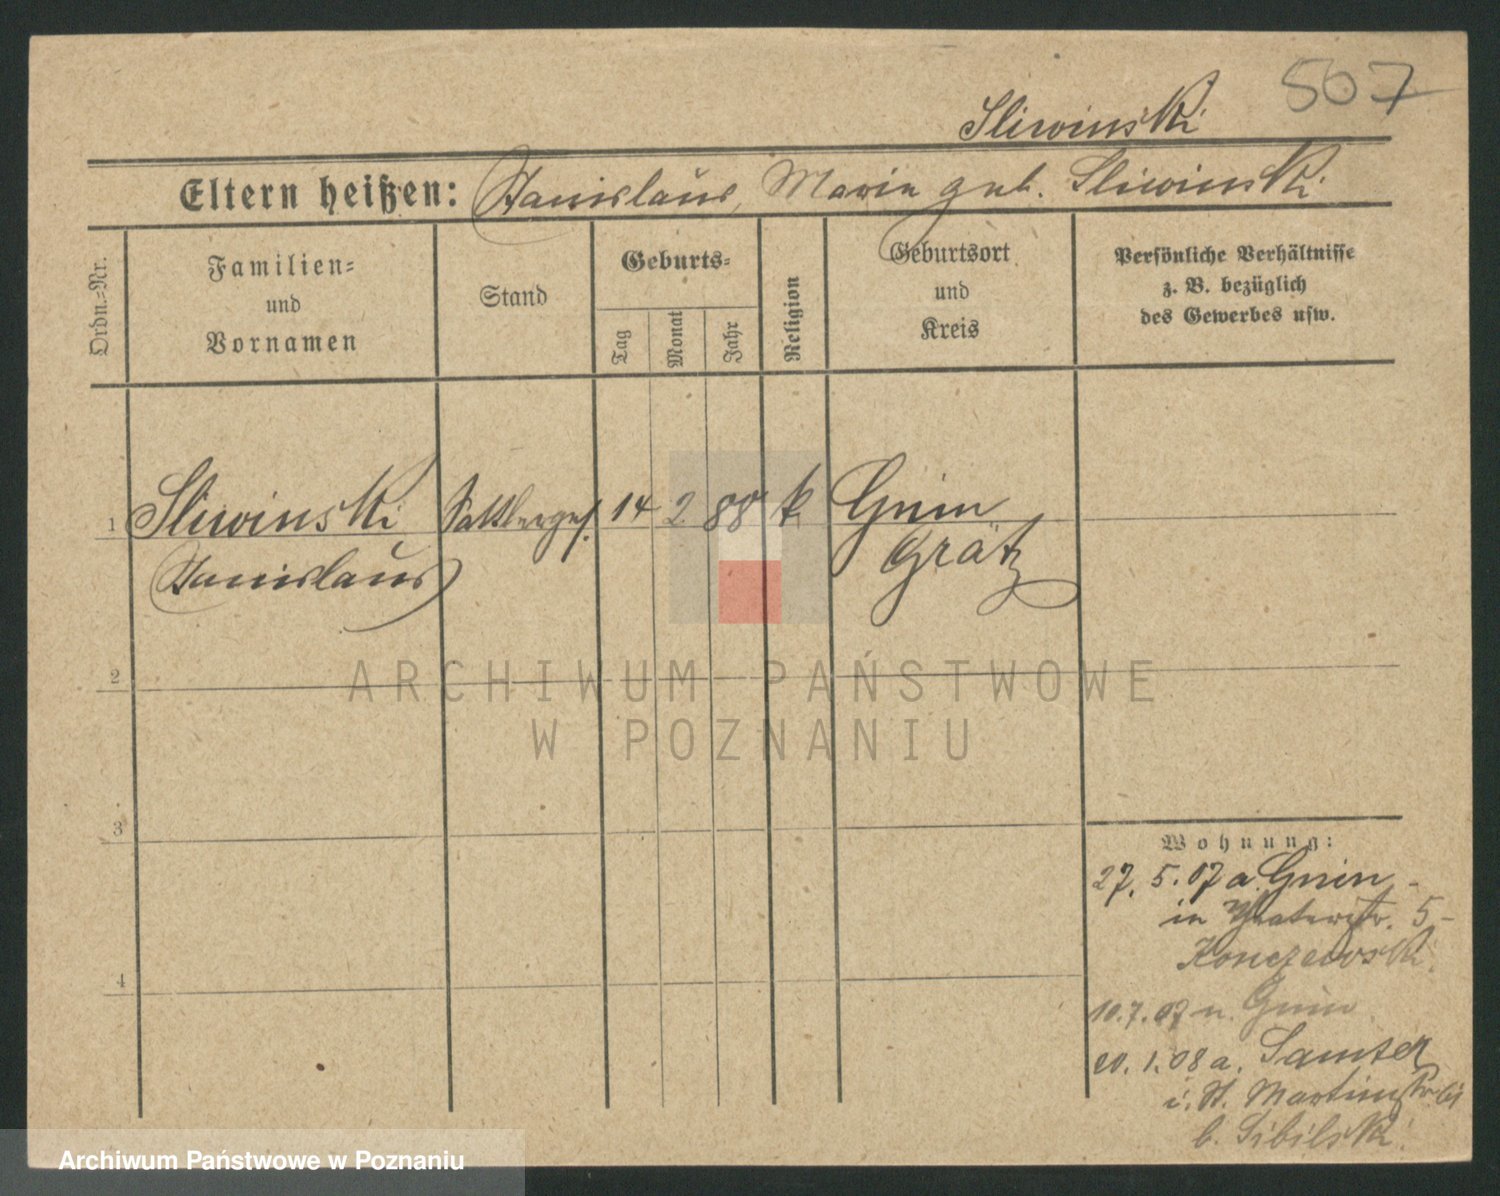 507
Sliwinski
Eltern heißen: Stanislaus, Maria geb. Sliwinski
Ordn.-Nr.
Familien-
und
Vornamen
Stand
Geburts-
Tag
Monat
Jahr
Religion
Geburtsort
und
Kreis
Persönliche Verhältnisse
z. B. bezüglich
des Gewerbes usw.
1 Sliwinski Sattlerges. 14 2 88 k Gnin
Stanislaus Grätz
2
3
4
Wohnung:
27. 5. 07 a. Gnin -
in 5 -
Konczewski
10. 7. 07 n. Gnin
20. 1. 08 a. Samter
i. St. Martinstr.
b. Sibilski
ARCHIWUM PAŃSTWOWE
W POZNANIU
Archiwum Państwowe w Poznaniu